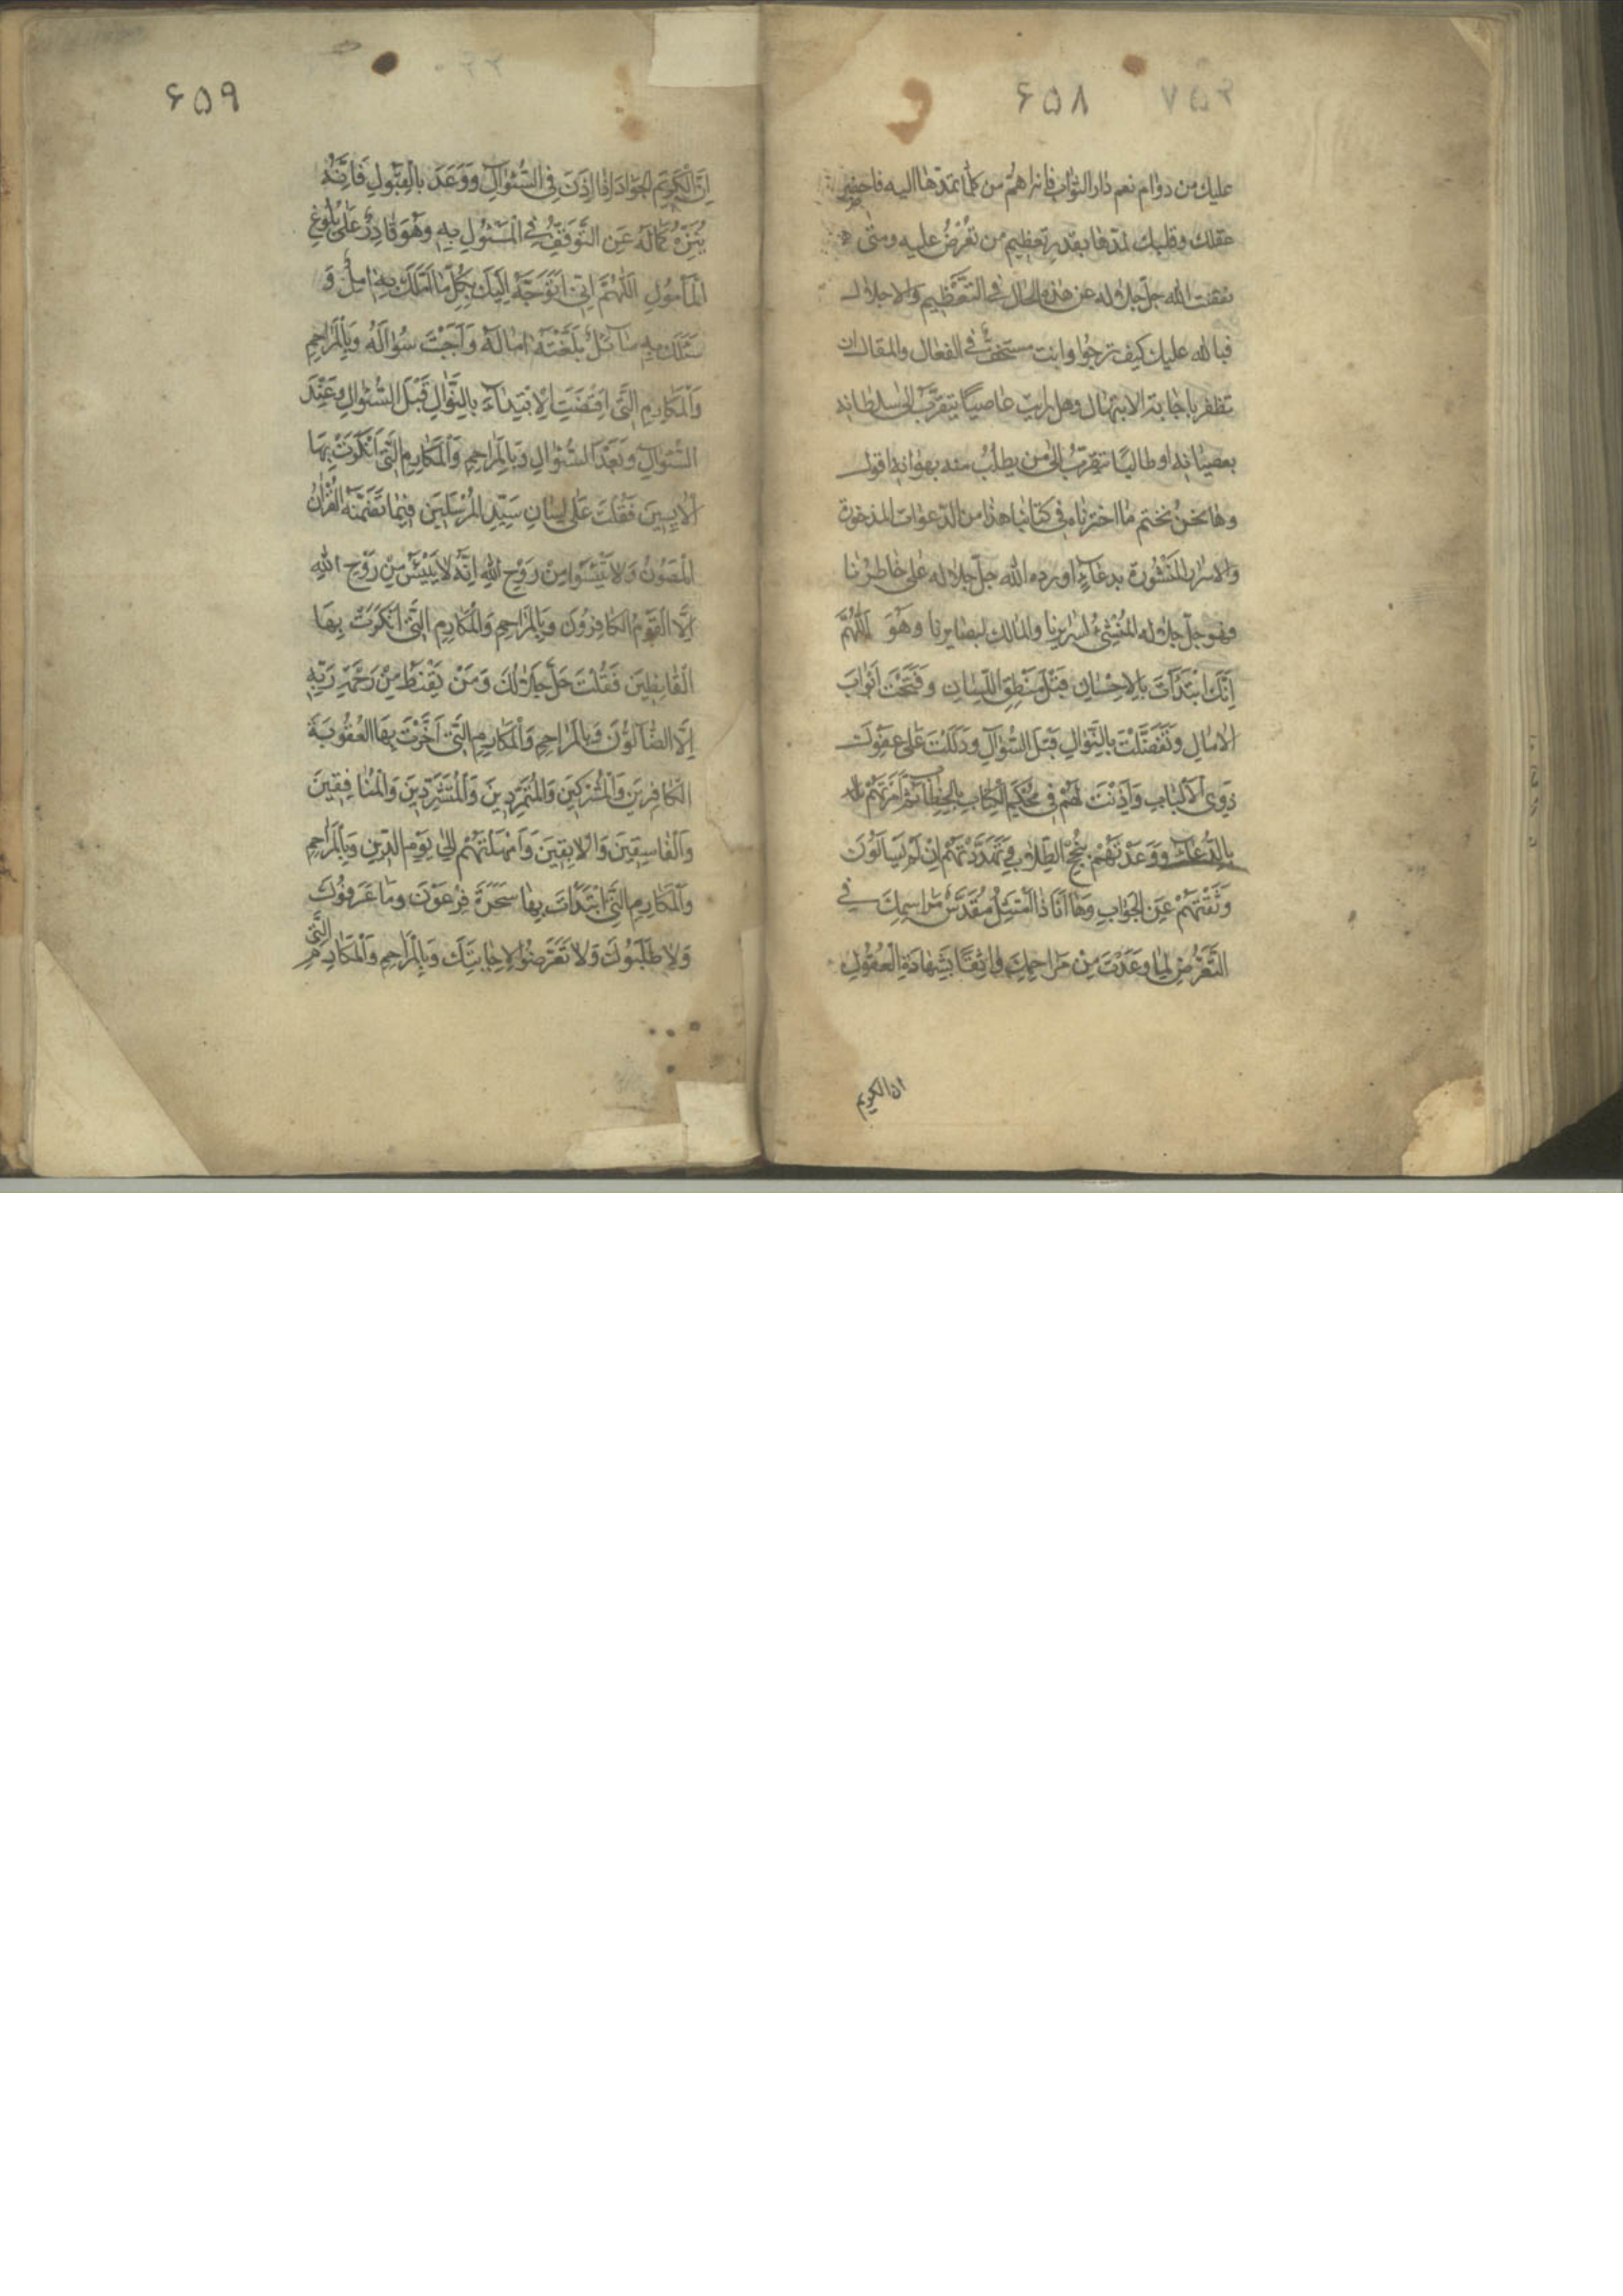 ۶۵۸ ۷۵۲
عليك من دوام نعم دار الثواب فانزاهم من كلما تمدّها اليه فاحضر
عقلك وقلبك لمدّها بقدر تعظيم من تعرض عليه ومتى
نقضت الله جلّ جلاله عن هذه الحال في التعظيم والاجلال
فبالله عليك كيف ترجوا وانت مستخفّ في الفعال والمقال ان
تظفر باجابة الابتهال وهل رايت عاصيًا يتقرّب الى سلطانه
بعصيانه او طالبًا يتقرّب الى من يطلب منه بهوانه اقول
وها نحن نختم ما اخترناه في كتابنا هذا من الدعوات المذخورة
والاسرار المنشورة بدعاءٍ اورده الله جلّ جلاله على خاطرنا
فهو جلّ جلاله المنشئ لسرايرنا والمالك لبصايرنا وهو اَللّهُمَّ
اِنَّكَ ابْتَدَأْتَ بِالاِحْسٰانِ قَبْلَ مَنْطِقِ اللِّسٰانِ وَفَتَحْتَ اَبْوٰابَ
الاٰمٰالِ وَتَفَضَّلْتَ بِالنَّوٰالِ قَبْلَ السُّؤٰالِ وَدَلَلْتَ عَلىٰ عَفْوِكَ
ذَوِي الاَلْبٰابِ وَاَذِنْتَ لَهُمْ فِي مُحْكَمِ الْكِتٰابِ بِالْخِطٰابِ ثُمَّ اَمَرْتَهُمْ
بِالدُّعٰاءِ وَوَعَدْتَهُمْ بِنُجْحِ الطِّلٰابِ وَتَهَدَّدْتَهُمْ اِنْ لَمْ يَسْاَلُوكَ
وَثِقَتَهُمْ عَنِ الْجَوٰابِ وَهٰا اَنَا ذَا الْمُتَمَثِّلُ مُقَدَّسَ مَرٰاسِمِكَ فِي
التَّعَرُّضِ لِمٰا وَعَدْتَ مِنْ مَرٰاحِمِكَ وٰاثِقًا بِشَهٰادَةِ الْعُقُولِ
ان الكريم
۶۵۹
اِنَّ الْكَرِيمَ الْجَوٰادَ اِذٰا اَذِنَ فِي السُّؤٰالِ وَوَعَدَ بِالْقَبُولِ فَاِنَّهُ
يُنَزِّهُ كَمٰالَهُ عَنِ التَّوَقُّفِ فِي الْمَسْئُولِ فِيهِ وَهُوَ قٰادِرٌ عَلىٰ بُلُوغِ
الْمَأْمُولِ اَللّٰهُمَّ اِنِّي اَتَوَجَّهُ اِلَيْكَ بِكُلِّ مٰا اَمَّلَكَ بِهِ اٰمِلٌ وَ
سَئَلَكَ بِهِ سٰائِلٌ بَلَّغْتَهُ اٰمٰالَهُ وَاَجَبْتَ سُؤٰالَهُ وَبِالْمَرٰاحِمِ
وَالْمَكٰارِمِ الَّتِي اقْتَضَتِ الاِبْتِدٰاءَ بِالنَّوٰالِ قَبْلَ السُّؤٰالِ وَعِنْدَ
السُّؤٰالِ وَبَعْدَ السُّؤٰالِ وَبِالْمَرٰاحِمِ وَالْمَكٰارِمِ الَّتِي اَنْكَرْتَ بِهٰا
الاٰيِسِينَ فَقُلْتَ عَلىٰ لِسٰانِ سَيِّدِ الْمُرْسَلِينَ فِيمٰا تَضَمَّنَهُ الْقُرْاٰنُ
الْمَصُونُ وَلاٰ تَيْئَسُوا مِنْ رَوْحِ اللهِ اِنَّهُ لاٰ يَيْئَسُ مِنْ رَوْحِ اللهِ
اِلاَّ الْقَوْمُ الْكٰافِرُونَ وَبِالْمَرٰاحِمِ وَالْمَكٰارِمِ الَّتِي اَنْكَرْتَ بِهٰا
الْقٰانِطِينَ فَقُلْتَ جَلَّ جَلاٰلُكَ وَمَنْ يَقْنَطُ مِنْ رَحْمَةِ رَبِّهِ
اِلاَّ الضّٰالُّونَ وَبِالْمَرٰاحِمِ وَالْمَكٰارِمِ الَّتِي اَخَّرْتَ بِهَا الْعُقُوبَةَ
الْكٰافِرِينَ وَالْمُشْرِكِينَ وَالْمُتَمَرِّدِينَ وَالْمُتَشَرِّدِينَ وَالْمُنٰافِقِينَ
وَالْفٰاسِقِينَ وَالاٰبِقِينَ وَاَمْهَلْتَهُمْ اِلىٰ يَوْمِ الدِّينِ وَبِالْمَرٰاحِمِ
وَالْمَكٰارِمِ الَّتِي ابْتَدَأْتَ بِهٰا سَحَرَةَ فِرْعَوْنَ وَمٰا عَرَفُوكَ
وَلاٰ طَلَبُوكَ وَلاٰ تَعَرَّضُوا لاِجٰابَتِكَ وَبِالْمَرٰاحِمِ وَالْمَكٰارِمِ الَّتِي